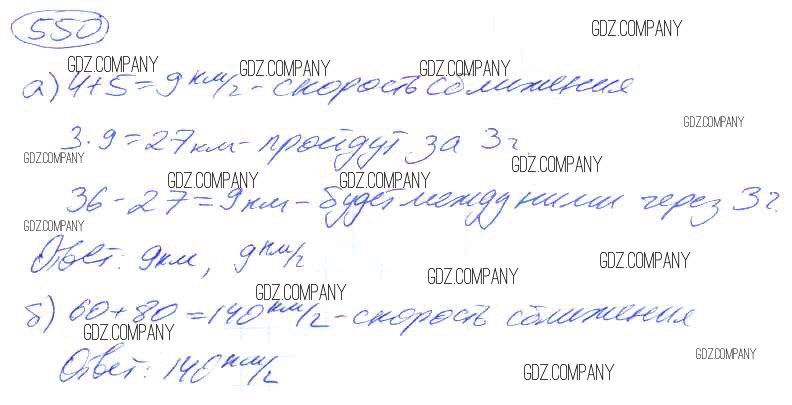 550
GDZ.COMPANY
GDZ.COMPANY GDZ.COMPANY GDZ.COMPANY
а) 4+5=9 км/г - скорость сближения
GDZ.COMPANY
3·9=27км - пройдут за 3г.
GDZ.COMPANY GDZ.COMPANY
GDZ.COMPANY GDZ.COMPANY
36-27=9км - будет между ними через 3г.
GDZ.COMPANY
Ответ: 9км, 9км/г
GDZ.COMPANY GDZ.COMPANY
GDZ.COMPANY
б) 60+80=140км/г - скорость сближения
GDZ.COMPANY
Ответ: 140км/г
GDZ.COMPANY
GDZ.COMPANY